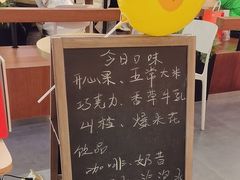 今日口味
开心果、五常大米
巧克力、香草牛乳
山楂、爆米花
饮品
咖啡·奶昔